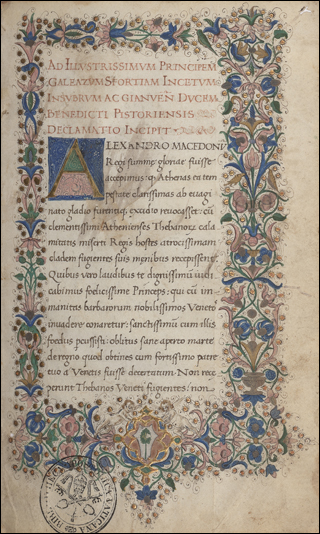 AD ILLVSTRISSIMVM PRINCIPEM
GALEATVM SFORTIAM INCLTVM
INSVBRVM AC GIANVEÑ DVCEM
BENEDICTI PISTORIENSIS
DECLAMATIO INCIPIT
ALEXANDRO MACEDONV
Regi summe gloriae fuisse
accepimus: q̃ Athenas ea tem
pestate clarissimas ab euagi
nato gladio furentiq; exercitu reuocasset: cũ
clementissimi Athenienses Thebanoꝝ cala
mitatis miserti Regis hostes atrocissimam
cladem fugientes suis menibus recepissent.
Quibus vero laudibus te dignissimũ iudi
cabimus foelicissime Princeps: qui cũ im
manitas barbarorum nobilissimos Venetos
inuadere conaretur: sanctissimũ cum illis
foedus percussisti: oblitus sane aperto marte
de regno quod obtines cum fortissimo patre
tuo a Venetis fuisse decertatum. Non rece
perunt Thebanos Veneti fugientes: non
VATICANA